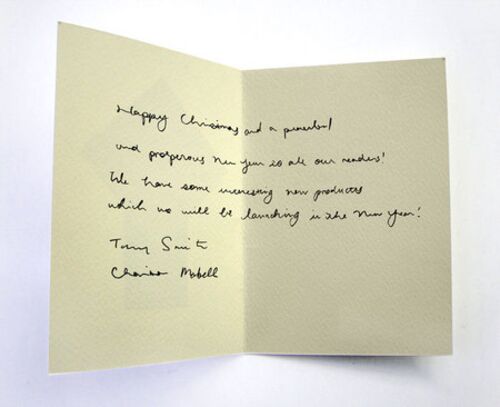 Happy Christmas and a powerful
and prosperous New Year to all our readers!
We have some interesting new products
which we will be launching in the New Year!
Tony Smith
Mobell